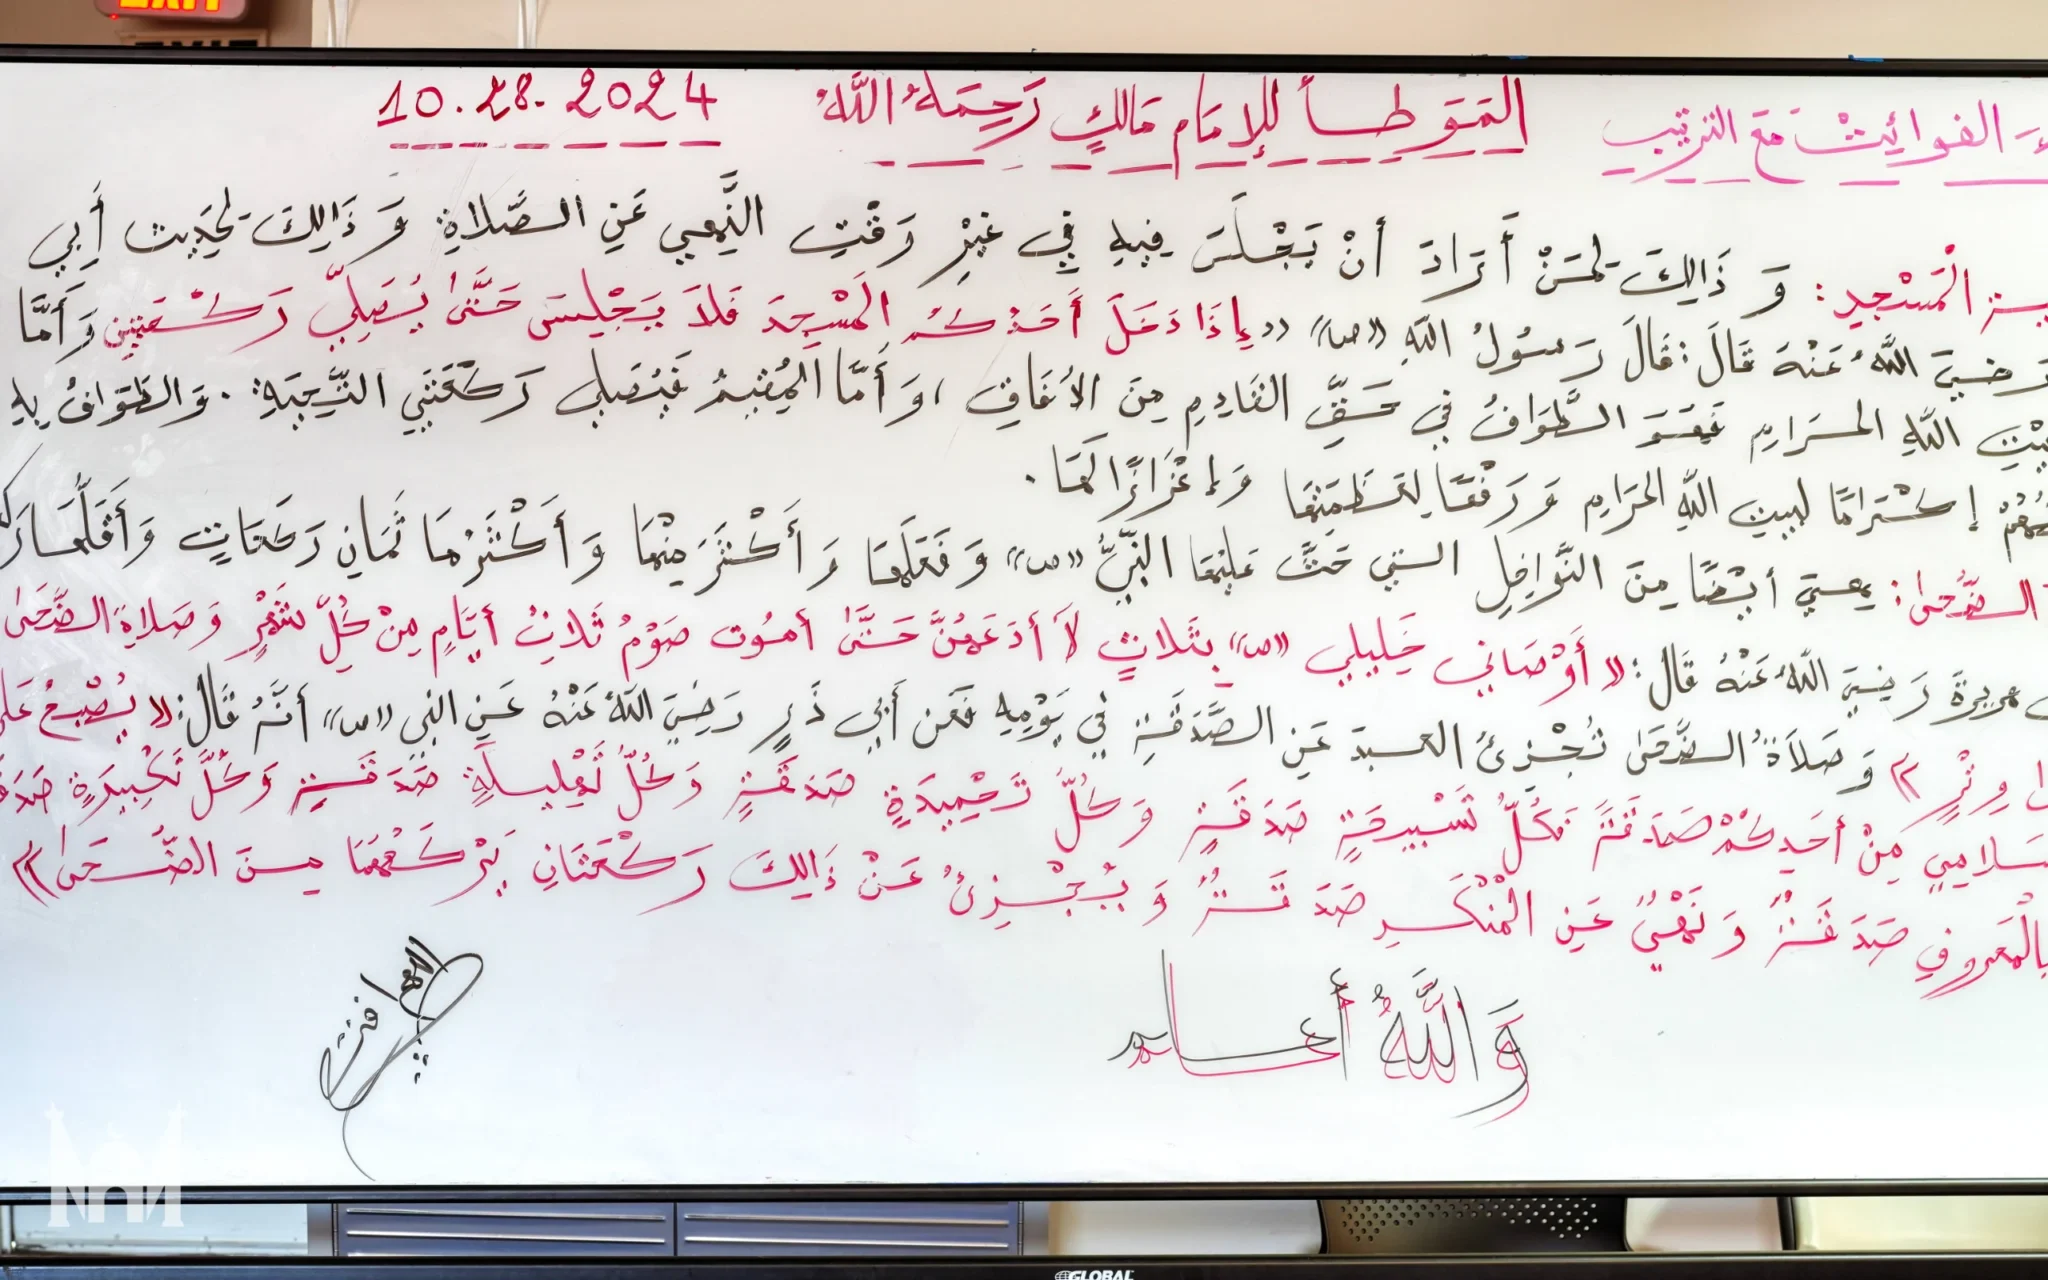 EXIT
الموطأ للإمام مالك رَحِمَهُ اللَّهُ
10.28.2024
الفوائت مع الترتيب
الْمَسْجِدِ: وَذَالِكَ لِمَنْ أَرَادَ أَنْ يَجْلَسَ فِيهِ فِي غَيْرِ وَقْتِ النَّهْيِ عَنِ الصَّلَاةِ وَذَالِكَ لِحَدِيثِ أَبِي
رَضِيَ اللَّهُ عَنْهُ قَالَ: قَالَ رَسُولُ اللَّهِ «ص» «إِذَا دَخَلَ أَحَدُكُمُ الْمَسْجِدَ فَلَا يَجْلِسْ حَتَّى يُصَلِّيَ رَكْعَتَيْنِ وَأَمَّا
اللَّهِ الحَرَامِ الطَّوَافُ فِي حَقِّ القَادِمِ مِنَ الأَفَاقِ، وَأَمَّا الْمُقِيمُ فَيُصَلِّي رَكْعَتَيِ التَّحِيَّةِ. وَالطَّوَافُ
إكْرَامًا لبيت اللَّهِ الحَرَامِ وَرَفْعًا وَإِعْزَازًا لَهَا.
الضُّحَى: أَيْضًا مِنَ النَّوَافِلِ التي حَثَّ عَلَيْهَا النَّبِيُّ «ص» وَفَعَلَهَا وَأَكْثَرَ مِنْهَا وَأَكْثَرُهَا ثَمَانِ رَكَعَاتٍ وَأَقَلُّهَا
هريرة رَضِيَ اللَّهُ عَنْهُ قَالَ: «أَوْصَانِي خَلِيلِي «ص» بِثَلَاثٍ لَا أَدَعَهُنَّ حَتَّى أَمُوت صَوْمُ ثَلَاثِ أَيَّامٍ مِنْ كُلِّ شَهْرٍ وَصَلَاةِ الضَّحَى
وِتْرٍ» وَصَلَاةُ الضُّحَى تُجْزِئُ العبد عَنِ الصَّدَقَةِ فِي يَوْمِهِ فَعَن أَبِي ذَرٍ رَضِيَ اللَّهُ عَنْهُ عَنِ النبي «ص» أَنَّهُ قَالَ: «يُصْبِحُ
سَلَامِي مِنْ أَحَدِكُمْ صَدَقَةٌ فَكُلُّ تَسْبِيحَةٍ صَدَقَةٍ وَكُلُّ تَحْمِيدَةٍ صَدَقَةٍ وَكُلُّ تَهْلِيلَةٍ صَدَقَةٍ وَكُلُّ تَكْبِيرَةٍ
بِالْمَعروفِ صَدَقَةٌ وَنَهْيٌ عَنِ الْمُنْكَرِ صَدَقَةٌ وَيُجْزِئُ عَنْ ذَالِكَ رَكْعَتَانِ يَرْكَعْهُمَا مِنَ الضُّحَى»
وَاللَّهُ أعلم
GLOBAL